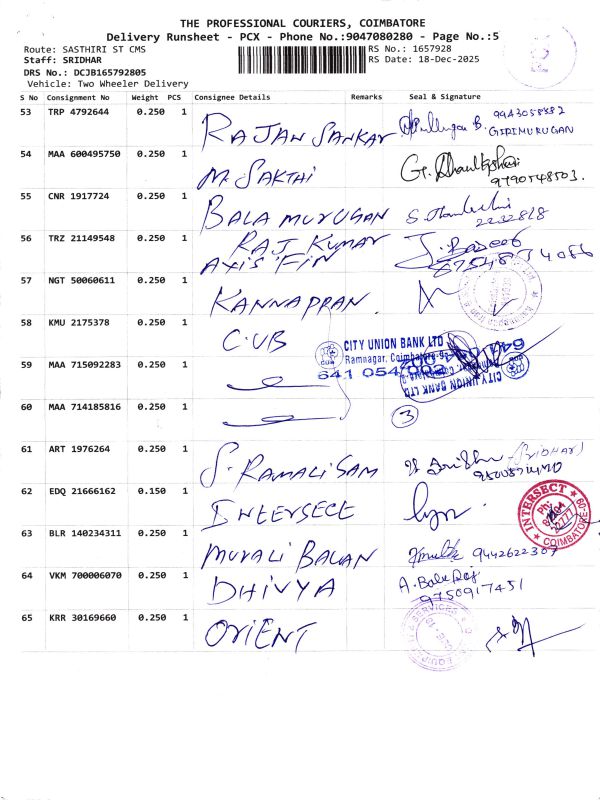 THE PROFESSIONAL COURIERS, COIMBATORE
Delivery Runsheet - PCX - Phone No.:9047080280 - Page No.:5
Route: SASTHIRI ST CMS
RS No.: 1657928
Staff: SRIDHAR
RS Date: 18-Dec-2025
DRS No.: DCJB165792805
Vehicle: Two Wheeler Delivery
S No Consignment No Weight PCS Consignee Details Remarks Seal & Signature
53 TRP 4792644 0.250 1 RAJAN SANKAR B. GIRIMURUGAN
54 MAA 600495750 0.250 1 M. SAKTHI
9790548503.
55 CNR 1917724 0.250 1 BALA MURUGAN
2232818
56 TRZ 21149548 0.250 1 RAJ KUMAR
AXIS FIN
57 NGT 50060611 0.250 1 KANNAPPAN
58 KMU 2175378 0.250 1 C.UB
CITY UNION BANK LTD
Ramnagar, Coimbatore-9
641 054 002
CITY UNION BANK LTD
59 MAA 715092283 0.250 1
60 MAA 714185816 0.250 1
3
61 ART 1976264 0.250 1 S. RAMALISAM (SRIDHAR)
62 EDQ 21666162 0.150 1 INTERSECT
INTERSECT
Ph:
COIMBATORE-09
63 BLR 140234311 0.250 1 MURALI BALAN 9442622307
64 VKM 700006070 0.250 1 DHIVYA A. Bala Raj
9750917451
65 KRR 30169660 0.250 1 ORIENT